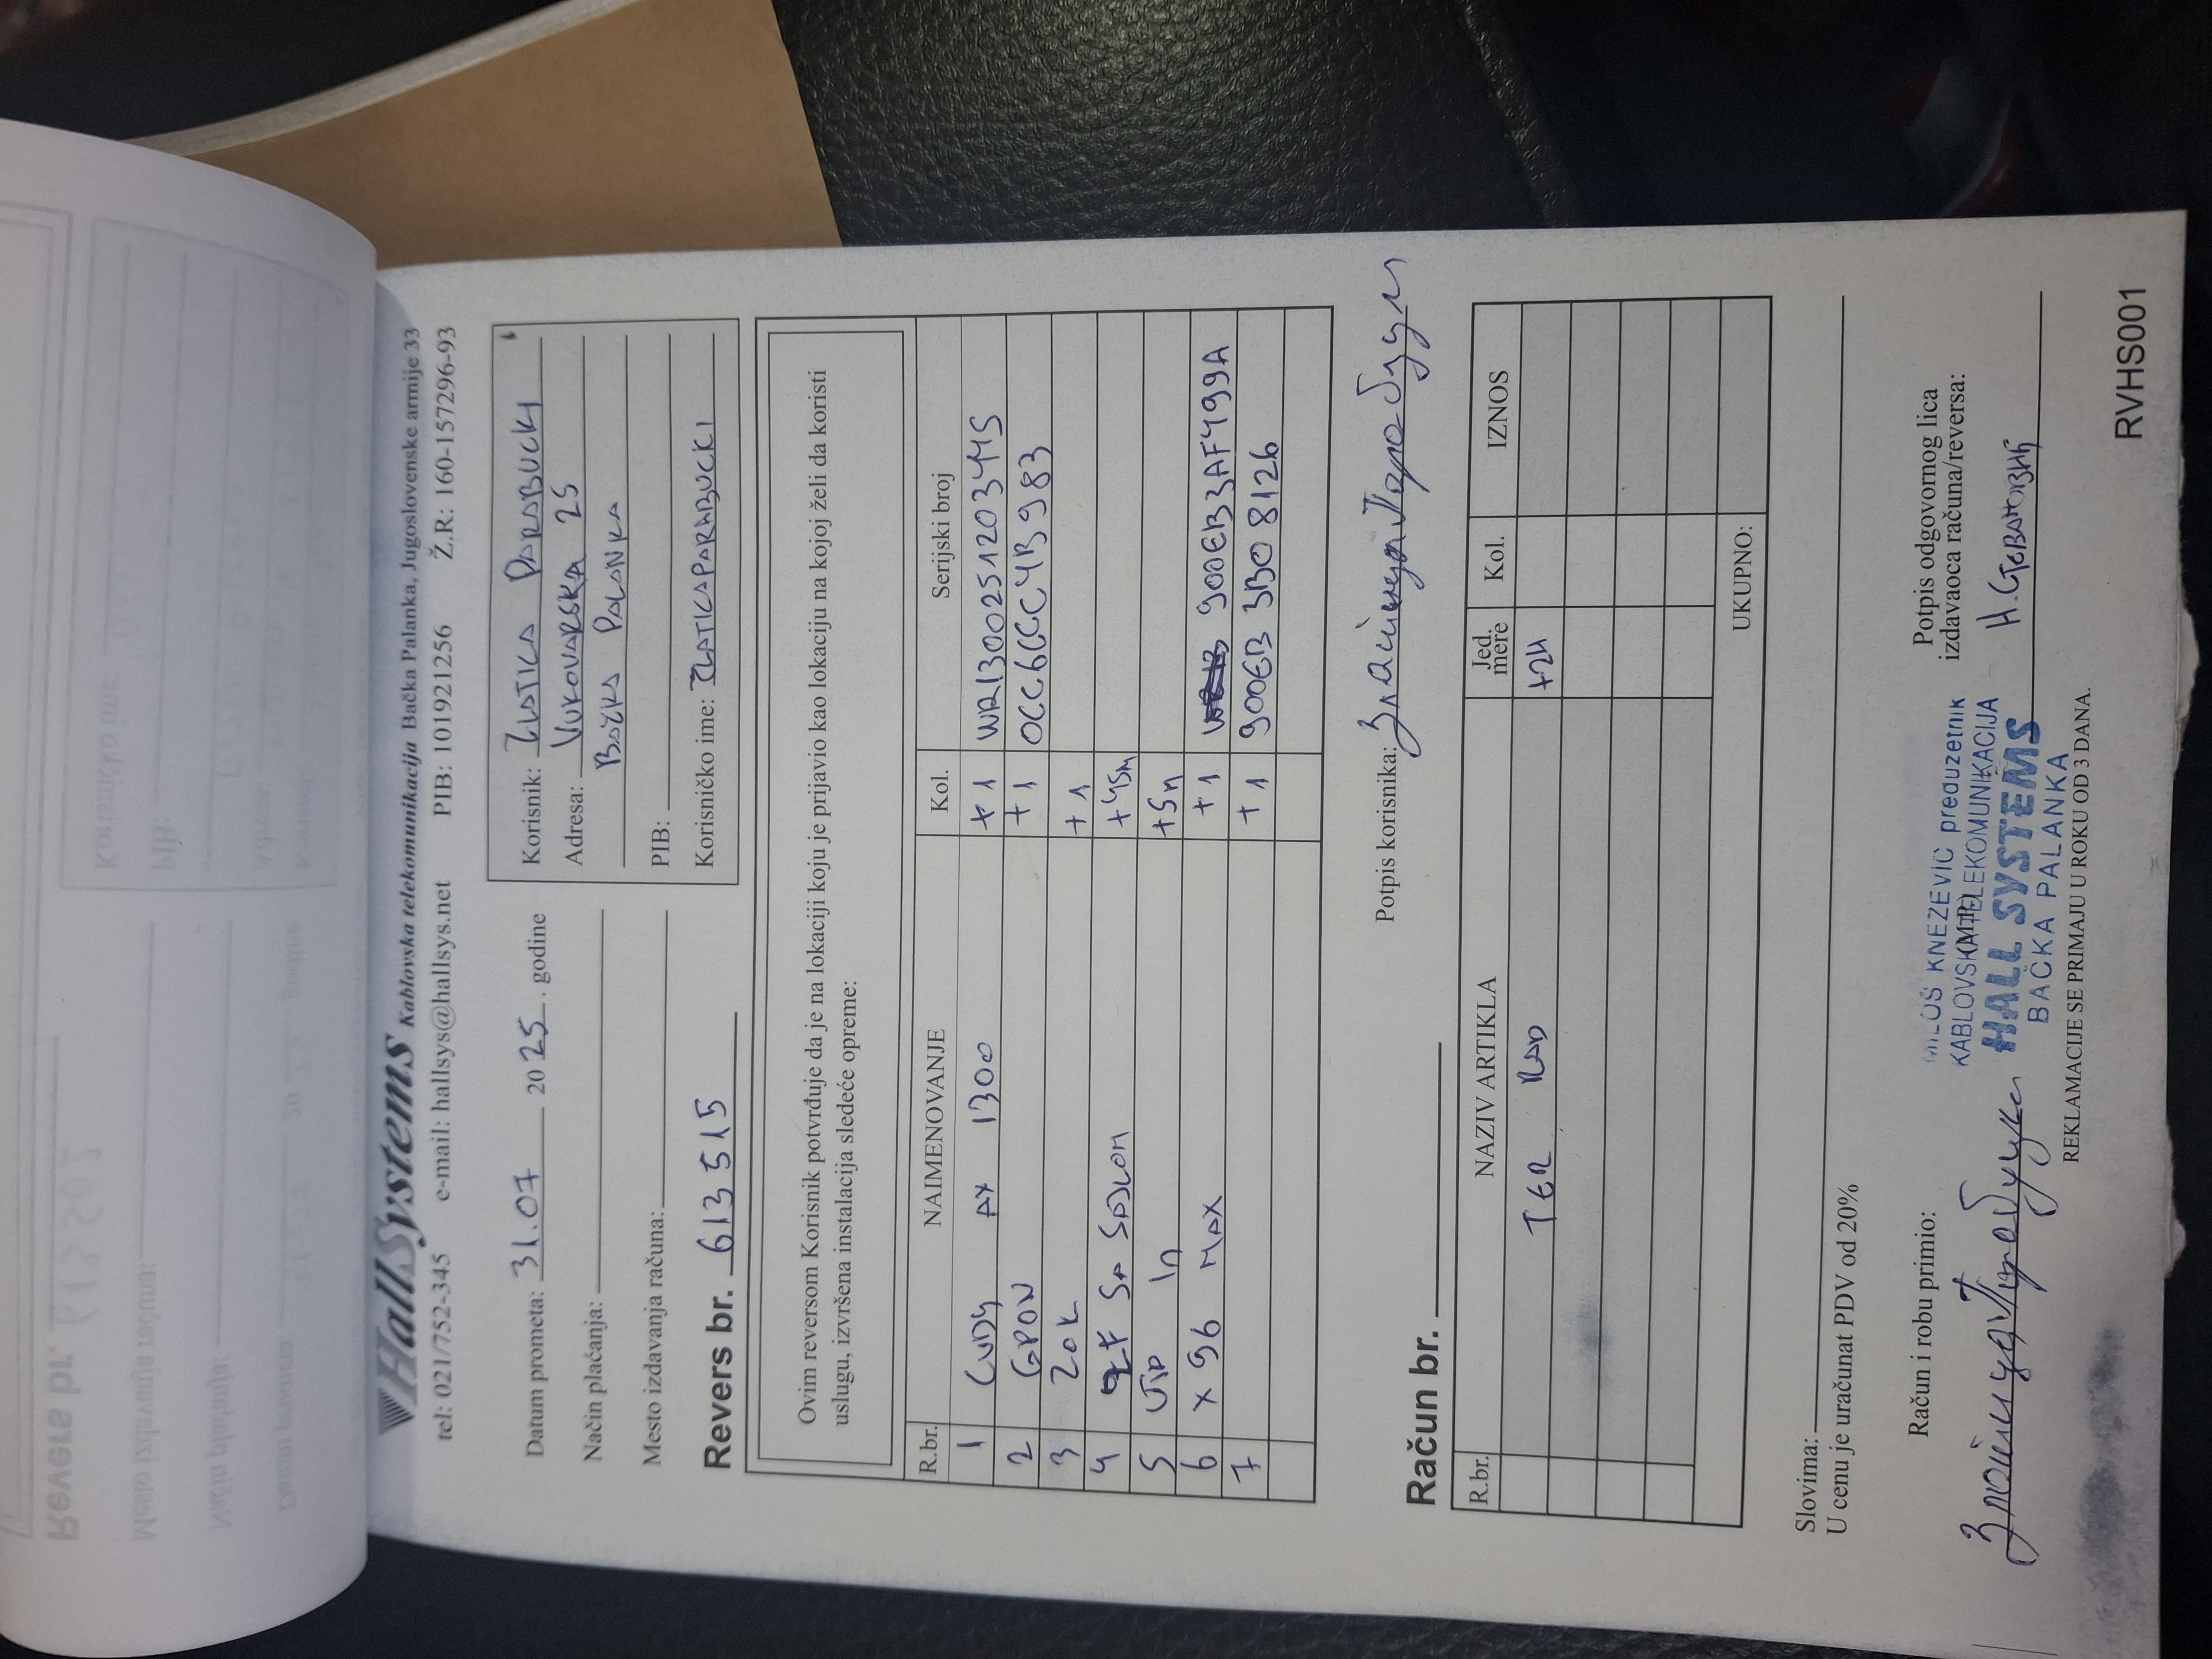 HallSystems Kablovska telekomunikacija Bačka Palanka, Jugoslovenske armije 33
tel: 021/752-345 e-mail: hallsys@hallsys.net PIB: 101921256 Ž.R: 160-157296-93
Datum prometa: 31.07 20 25 . godine
Način plaćanja:
Mesto izdavanja računa:
Revers br. 613515
Korisnik: ZLATICA PARABUCKI
Adresa: VUKOVARSKA 25
BAČKA PALANKA
PIB:
Korisničko ime: ZLATICAPARABUCKI
Ovim reversom Korisnik potvrđuje da je na lokaciji koju je prijavio kao lokaciju na kojoj želi da koristi
uslugu, izvršena instalacija sledeće opreme:
R.br. NAIMENOVANJE Kol. Serijski broj
1 CUDY AX 1300 +1 WR1300251203445
2 GPON +1 0CC6CCC4B983
3 ZOK +1
4 SA SAJLOM +45m
5 UTP In +5m
6 X96 MAX +1 900EB3AF499A
7 +1 900EB3B08126
Potpis korisnika: Златица Парабуцки
Račun br.
R.br. NAZIV ARTIKLA Jed. mere Kol. IZNOS
TER RAD +2H
UKUPNO:
Slovima:
U cenu je uračunat PDV od 20%
Račun i robu primio:
Златица Парабуцки
MILOŠ KNEZEVIC preduzetnik
KABLOVSKA TELEKOMUNIKACIJA
(M.P.)
HALL SYSTEMS
BAČKA PALANKA
Potpis odgovornog lica
izdavaoca računa/reversa:
Н. Стевановић
REKLAMACIJE SE PRIMAJU U ROKU OD 3 DANA.
RVHS001